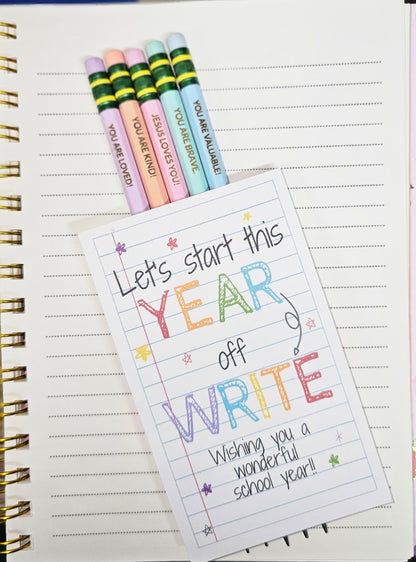 YOU ARE LOVED!
YOU ARE KIND!
JESUS LOVES YOU!
YOU ARE BRAVE.
YOU ARE VALUABLE!
Let's start this
YEAR
off
WRITE
Wishing you a
wonderful
school year!!